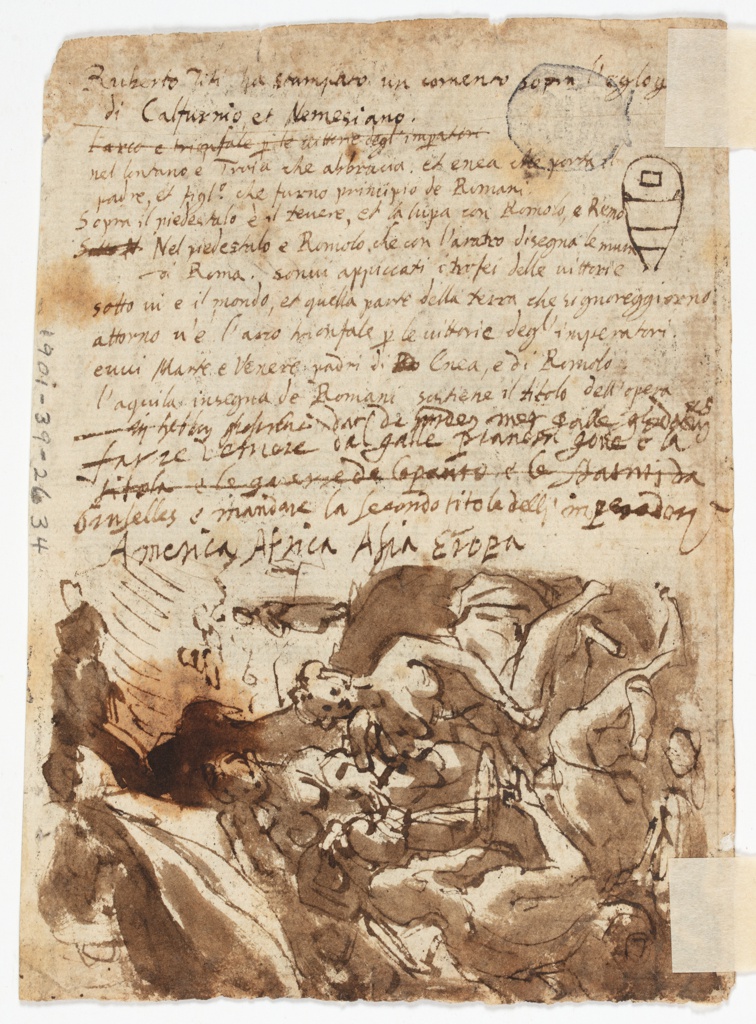 Ruberto Titi ha stampato un comento sopra l'eglog
di Calfurnio et Nemesiano.
L'arco e trionfale p le vittorie degl'imperatori
nel lontano e Troia che abbrucia. et enea che porta il
padre, et figl.º che furno principio de Romani.
Sopra il piedestalo è il tevere, et la lupa con Romolo, e Remo
Nel piedestalo e Romolo, che con l'aratro disegna le mura
di Roma. sonvi appiccati i trofei delle vittorie
sotto vi e il mondo, et quella parte della terra che signoreggiorno
attorno v'è l'arco trionfale p le vittorie degl'imperatori.
evvi Marte e Venere padri di Enea, e di Romolo
l'aquila insegna de Romani sostiene il titolo dell'opera
dalle
far le da galle e la
titola e le guerre de lepanto e le
bruselles e mandare la secondo titola dell'imperador
America Africa Asia Eropa
1901-39-2634